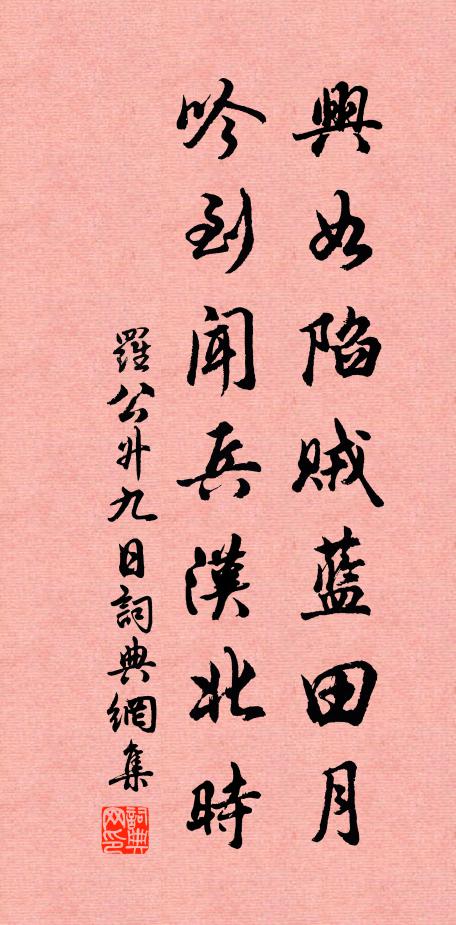 興如陷賊藍田月
吟到聞兵漢北時
羅公升九日詞典網集
詞典
网印